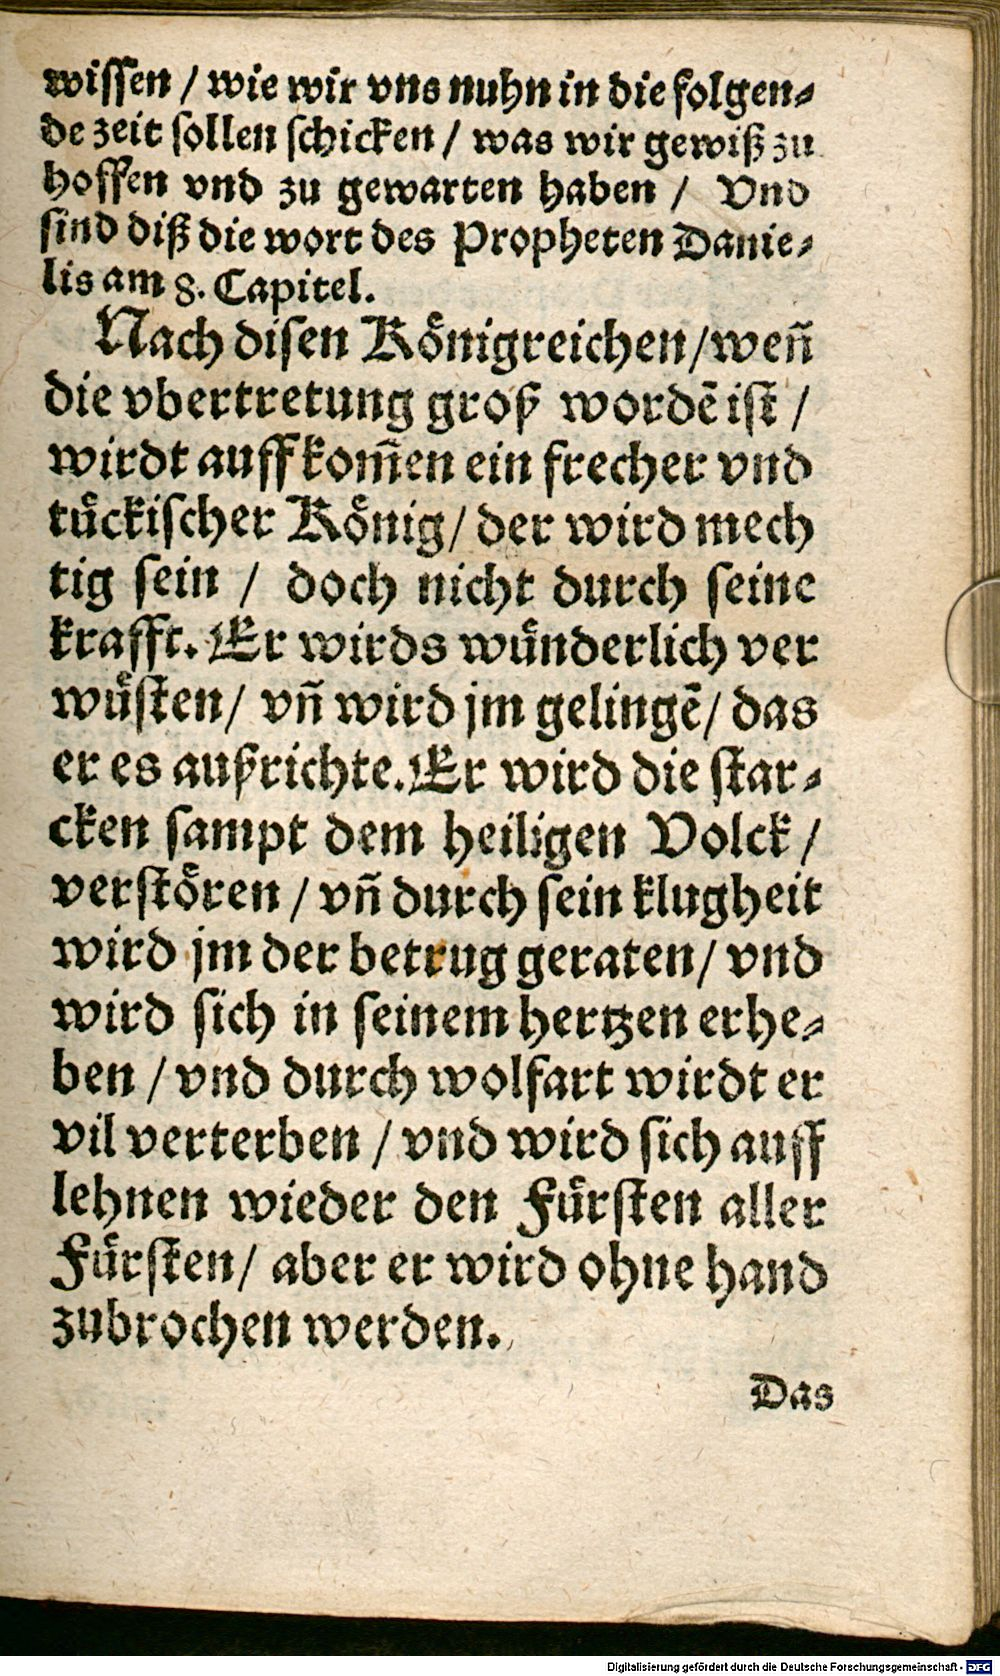 wiſſen / wie wir vns nuhn in die folgen⸗
de zeit ſollen ſchicken / was wir gewiß zu
hoffen vnd zu gewarten haben / Vnd
ſind diß die wort des Propheten Danie⸗
lis am 8. Capitel.
Nach diſen Koͤnigreichen/ weñ
die vbertretung groß wordẽ iſt /
wirdt auffkom̃en ein frecher vnd
tuͤckiſcher Koͤnig/ der wird mech
tig ſein / doch nicht durch ſeine
krafft. Er wirds wuͤnderlich ver
wuͤſten/ vñ wird jm gelingẽ/ das
er es außrichte. Er wird die ſtar⸗
cken ſampt dem heiligen Volck /
verſtoͤren / vñ durch ſein klugheit
wird jm der betrug geraten/ vnd
wird ſich in ſeinem hertzen erhe⸗
ben / vnd durch wolfart wirdt er
vil verterben / vnd wird ſich auff
lehnen wieder den Fuͤrſten aller
Fuͤrſten/ aber er wird ohne hand
zubrochen werden.
Das
Digitalisierung gefördert durch die Deutsche Forschungsgemeinschaft - DFG